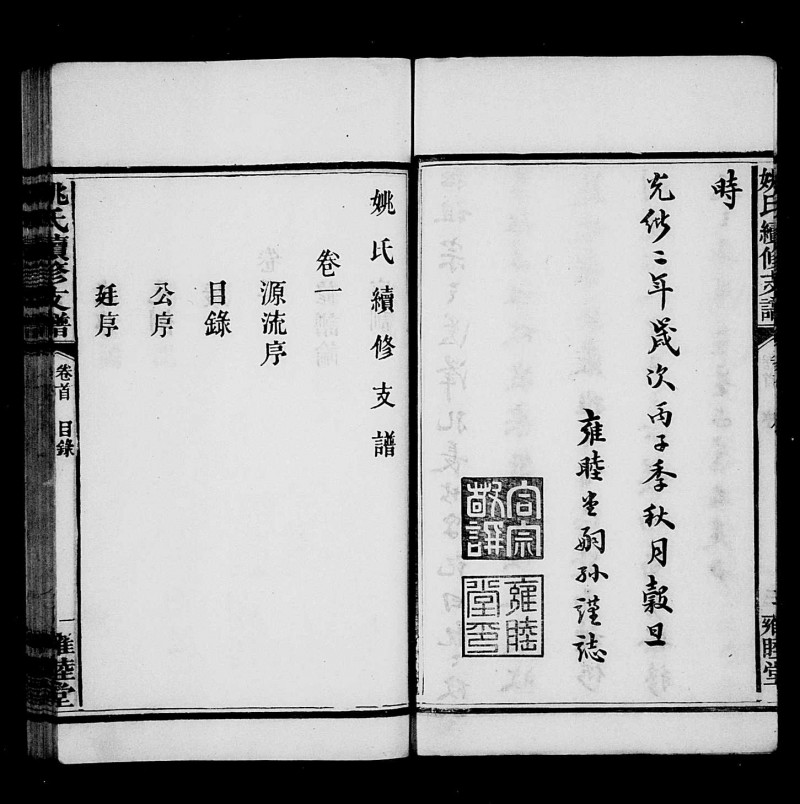 姚氏續修支譜
雍睦堂
時
光緒二年歲次丙子季秋月穀旦
雍睦堂嗣孫謹誌
合宗
敬譔
雍睦
堂印
姚氏續修支譜
卷一
源流序
目錄
公序
廷序
姚氏續修支譜
卷首 目錄
一
雍睦堂